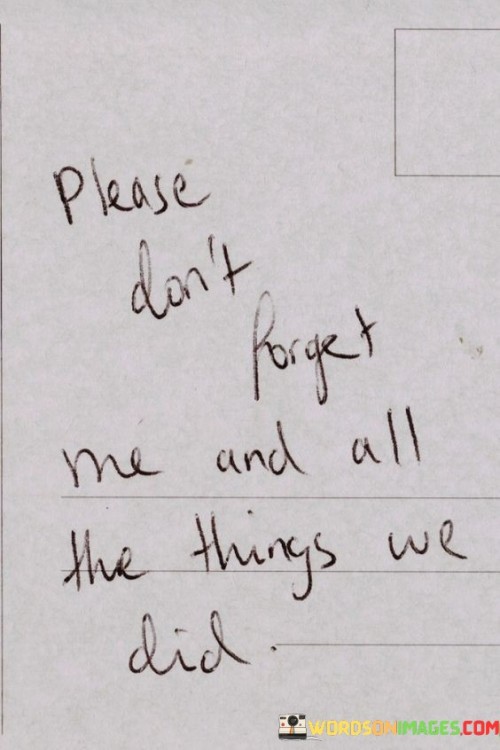 Please
don't
forget
me and all
the things we
did.
WORDSONIMAGES.COM